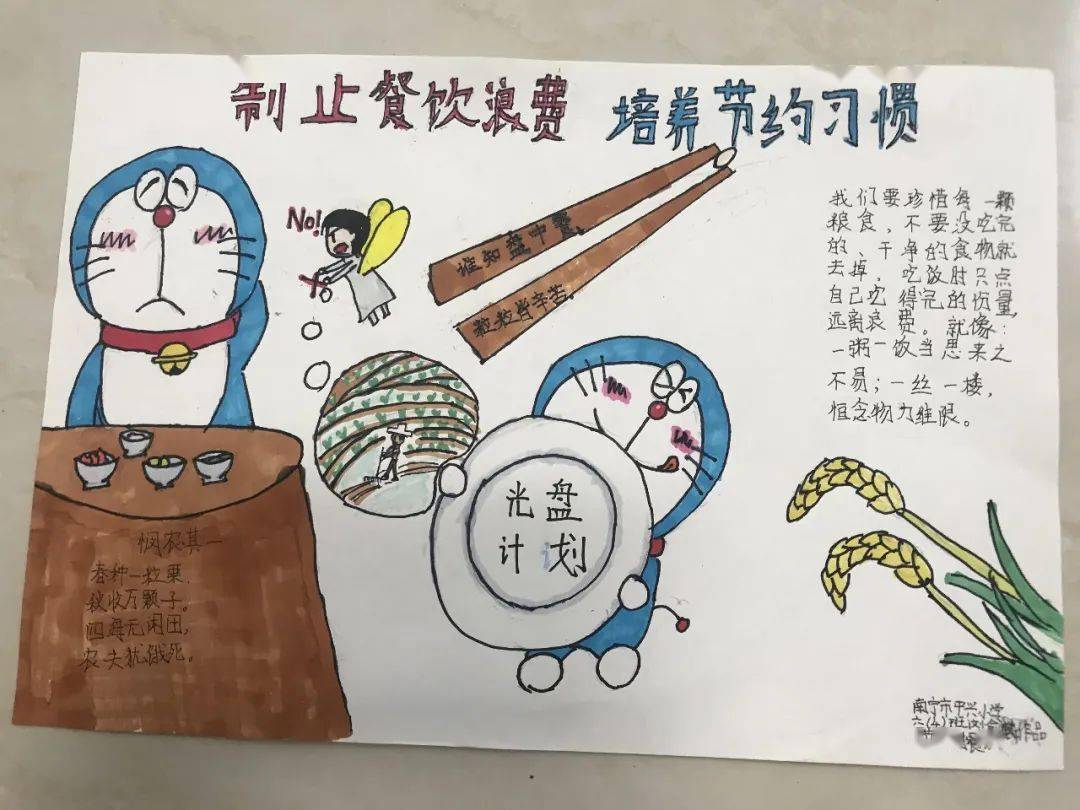 制止餐饮浪费 培养节约习惯
No!
谁知盘中餐,
粒粒皆辛苦。
我们要珍惜每一颗
粮食,不要没吃完
的、干净的食物就
去掉,吃饭时只点
自己吃得完的份量,
远离浪费。就像:
一粥一饭当思来之
不易;一丝一楼,
恒念物力维限。
光盘
计划
悯农其一
春种一粒粟,
秋收万颗子。
四海无闲田,
农夫犹饿死。
南宁市中兴小学
六(4)班 作品